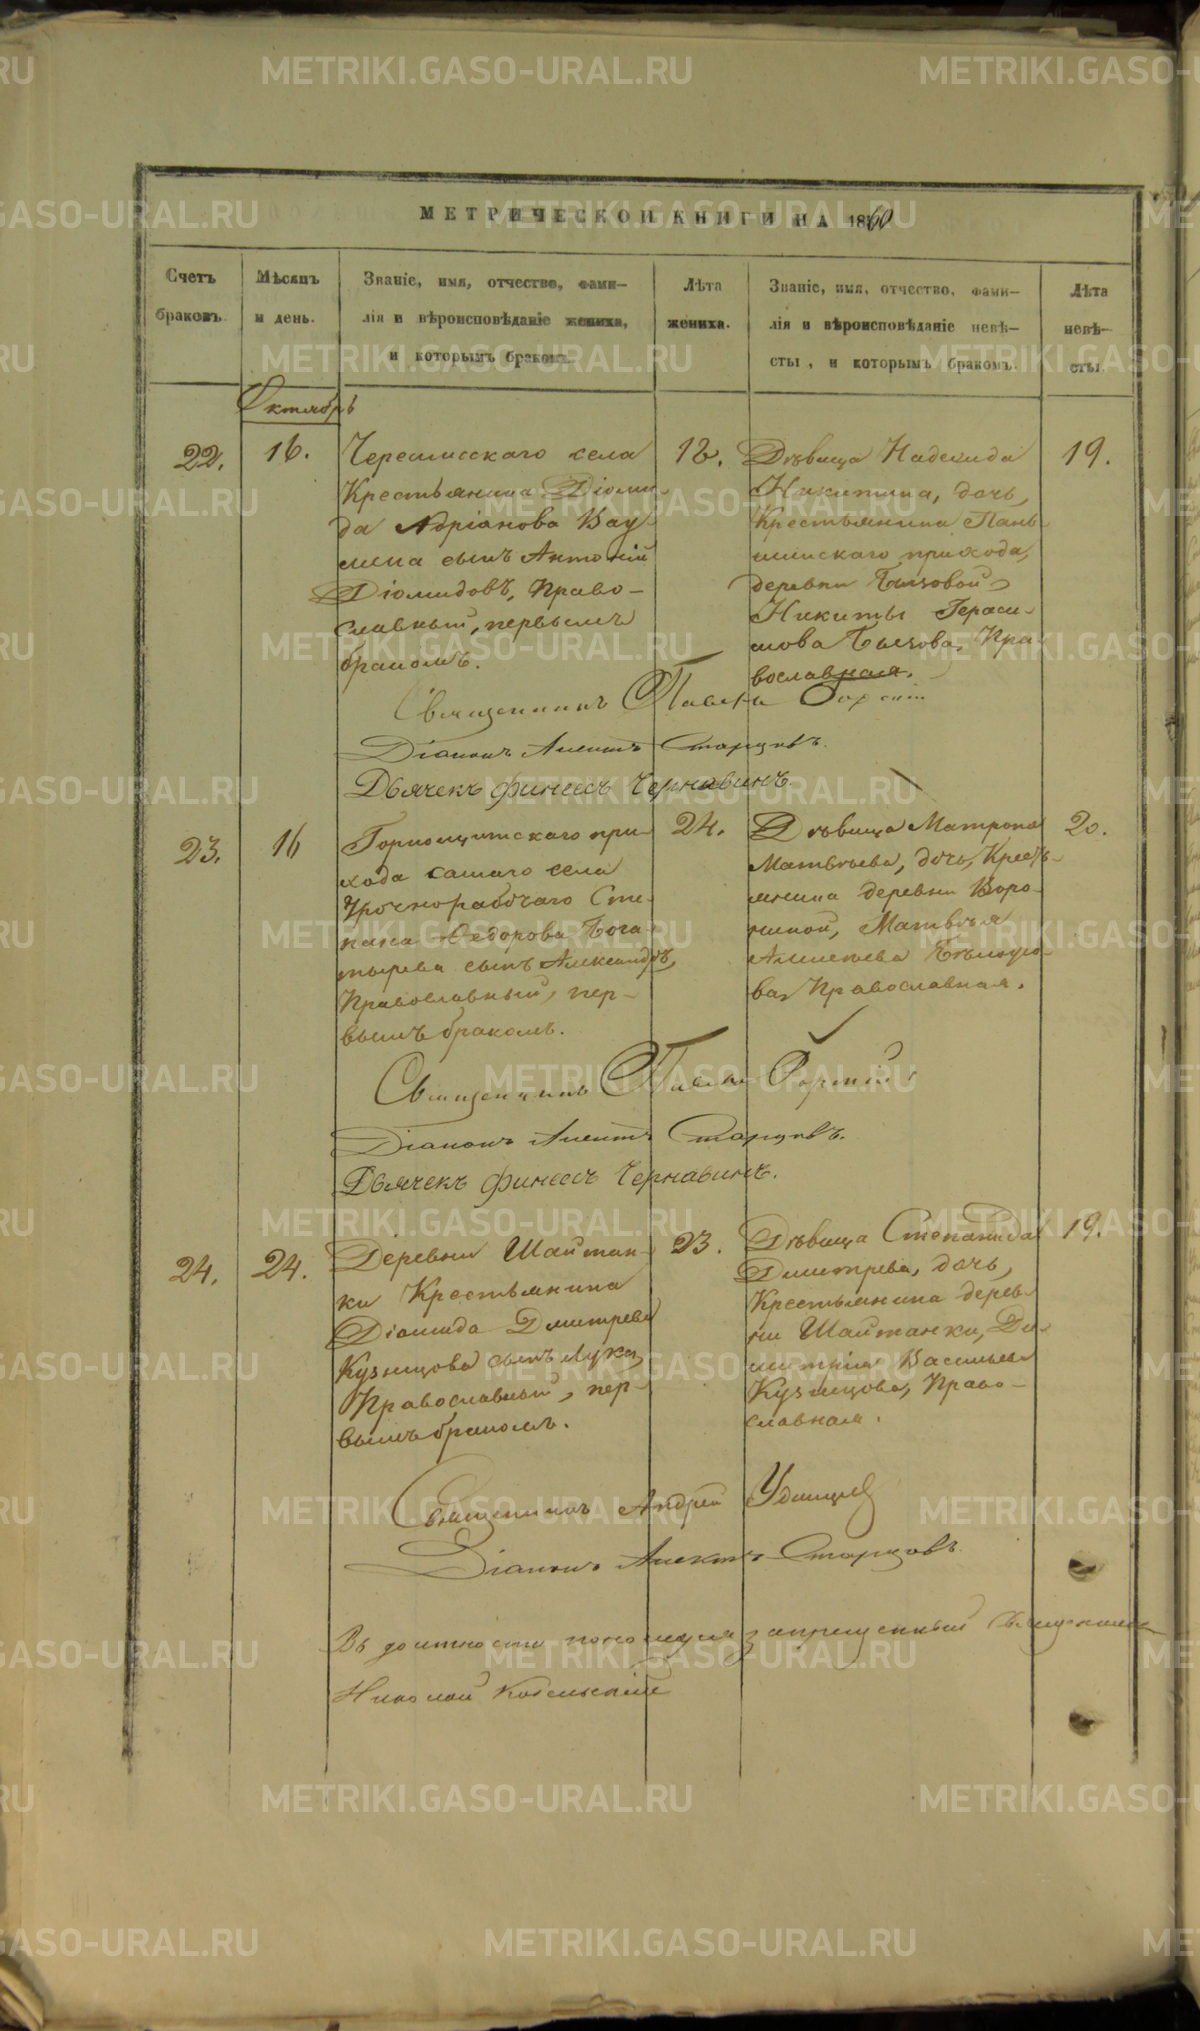 МЕТРИЧЕСКОЙ КНИГИ НА 1860
Счетъ браковъ.
Мѣсяцъ и день.
Званіе, имя, отчество, фами-
лія и вѣроисповѣданіе жениха,
и которымъ бракомъ.
Лѣта жениха.
Званіе, имя, отчество, фами-
лія и вѣроисповѣданіе невѣ-
сты, и которымъ бракомъ.
Лѣта невѣ-
сты.
Октябрь
22.
16.
Черемисскаго села
Крестьянина Діоми-
да Адріанова Вау-
лина сынъ Антоній
Діомидовъ, Право-
славный, первымъ
бракомъ.
18.
Дѣвица Надежида
Никитина, дочь
Крестьянина Пань-
шинскаго прихода,
деревни
Никиты Гераси-
мова Пра-
вославная.
19.
Священникъ Павелъ
Діаконъ Старцовъ.
Дьячекъ Финеесъ Чернавинъ.
23.
16
Горнощитскаго при-
хода самаго села
Урочнорабочаго Сте-
пана Федорова Бога-
тырева сынъ Александръ,
Православный, пер-
вымъ бракомъ.
24.
Дѣвица Матрона
Матвѣева, дочь Кресть-
янина деревни Воро-
ниной, Матвѣя
Православная.
20.
Священникъ Павелъ
Діаконъ Старцовъ.
Дьячекъ Финеесъ Чернавинъ.
24.
24.
Деревни Шайтан-
ки Крестьянина
Діомида Дмитрева
Кузнецова сынъ Лука,
Православный, пер-
вымъ бракомъ.
23.
Дѣвица Степанида
Димитрева, дочь,
Крестьянина дерев-
ни Шайтанки, Ди-
митрія Васильева
Кузнецова, Право-
славная.
19.
Священникъ Андрей Удинцев
Діаконъ Старцовъ.
Въ должности запрещенный Священникъ
Николай
METRIKI.GASO-URAL.RU